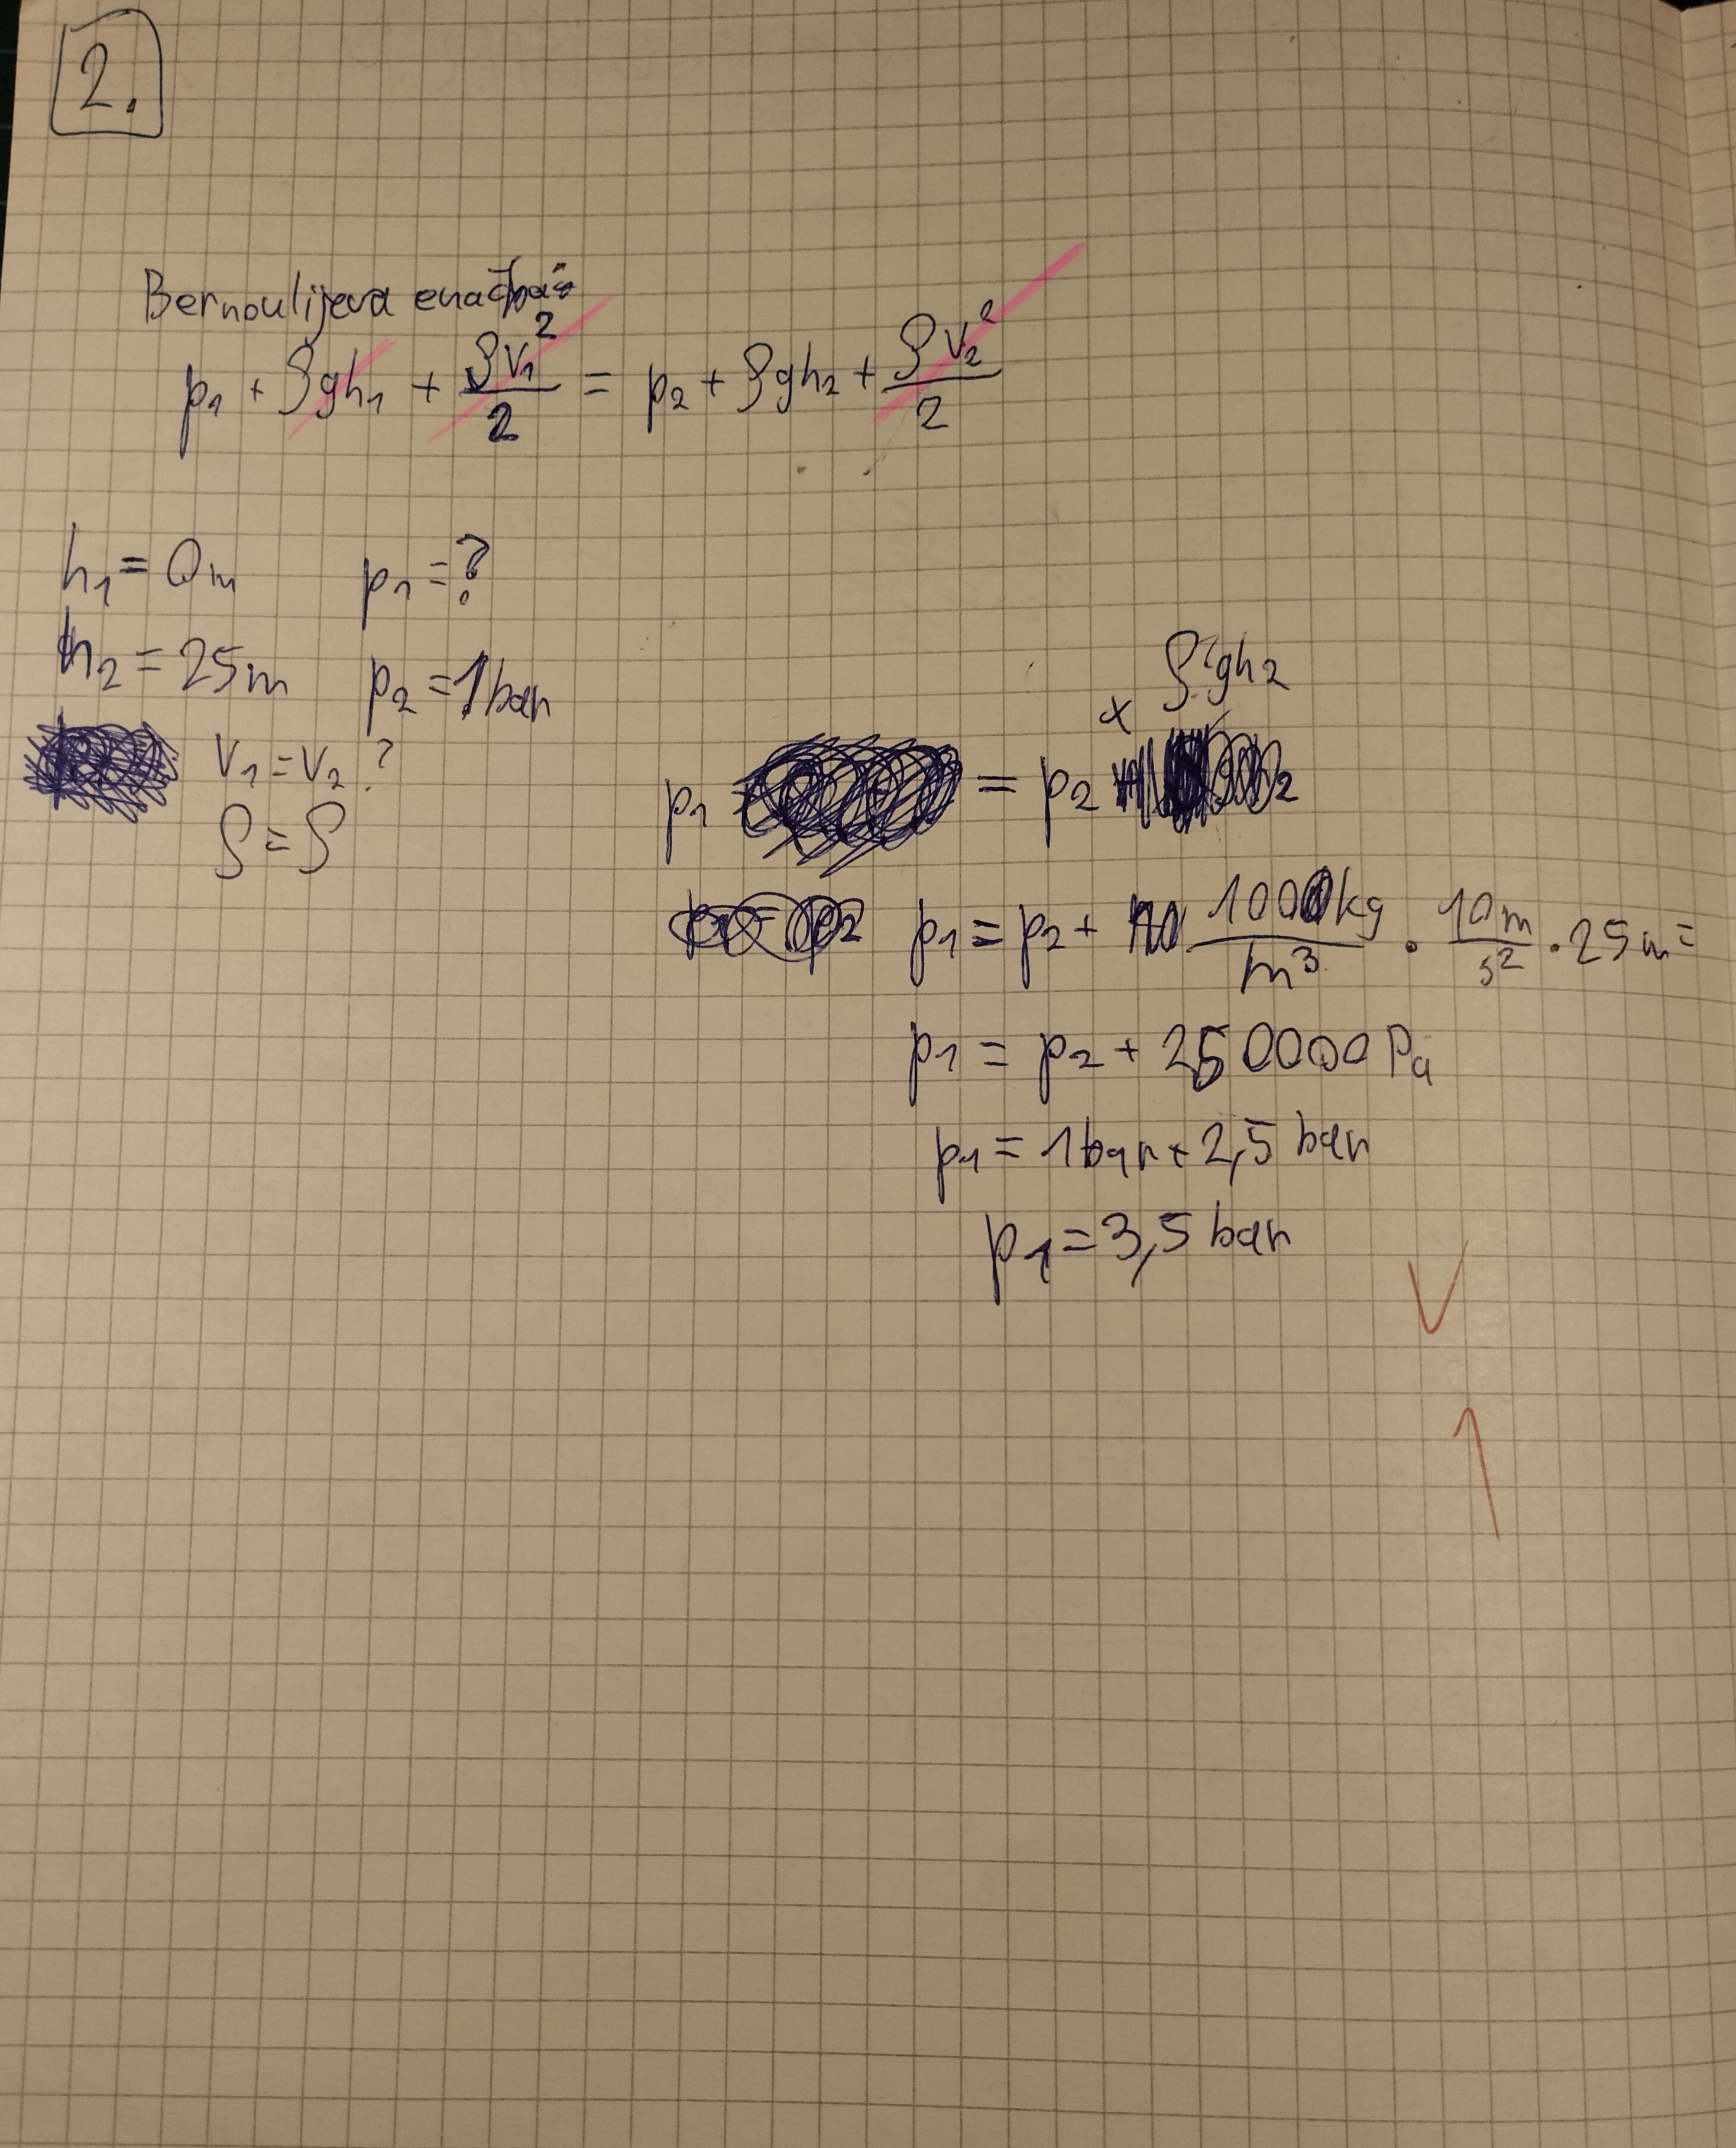 2.
Bernoulijeva enačba:
p₁ + ρgh₁ + ρv₁²/2 = p₂ + ρgh₂ + ρv₂²/2
h₁ = 0m p₁ = ?
h₂ = 25m p₂ = 1bar
v₁ = v₂ ?
ρ = ρ
ρgh₂
p₁ = p₂ +
p₁ = p₂ + 1000kg/m³ · 10m/s² · 25m =
p₁ = p₂ + 250000 Pa
p₁ = 1bar + 2,5 bar
p₁ = 3,5 bar